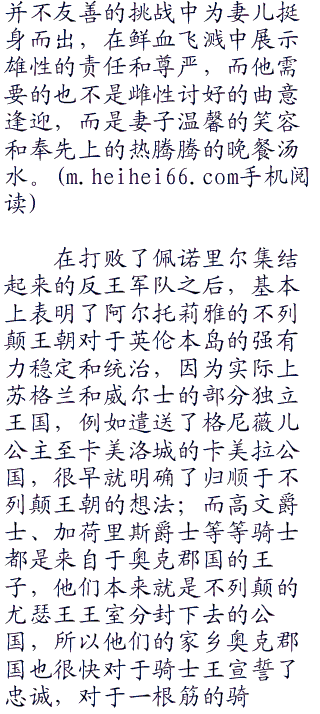 并不友善的挑战中为妻儿挺
身而出，在鲜血飞溅中展示
雄性的责任和尊严，而他需
要的也不是雌性讨好的曲意
逢迎，而是妻子温馨的笑容
和奉先上的热腾腾的晚餐汤
水。(m.heihei66.com手机阅
读)
在打败了佩诺里尔集结
起来的反王军队之后，基本
上表明了阿尔托莉雅的不列
颠王朝对于英伦本岛的强有
力稳定和统治，因为实际上
苏格兰和威尔士的部分独立
王国，例如遣送了格尼薇儿
公主至卡美洛城的卡美拉公
国，很早就明确了归顺于不
列颠王朝的想法；而高文爵
士、加荷里斯爵士等等骑士
都是来自于奥克郡国的王
子，他们本来就是不列颠的
尤瑟王王室分封下去的公
国，所以他们的家乡奥克郡
国也很快对于骑士王宣誓了
忠诚，对于一根筋的骑